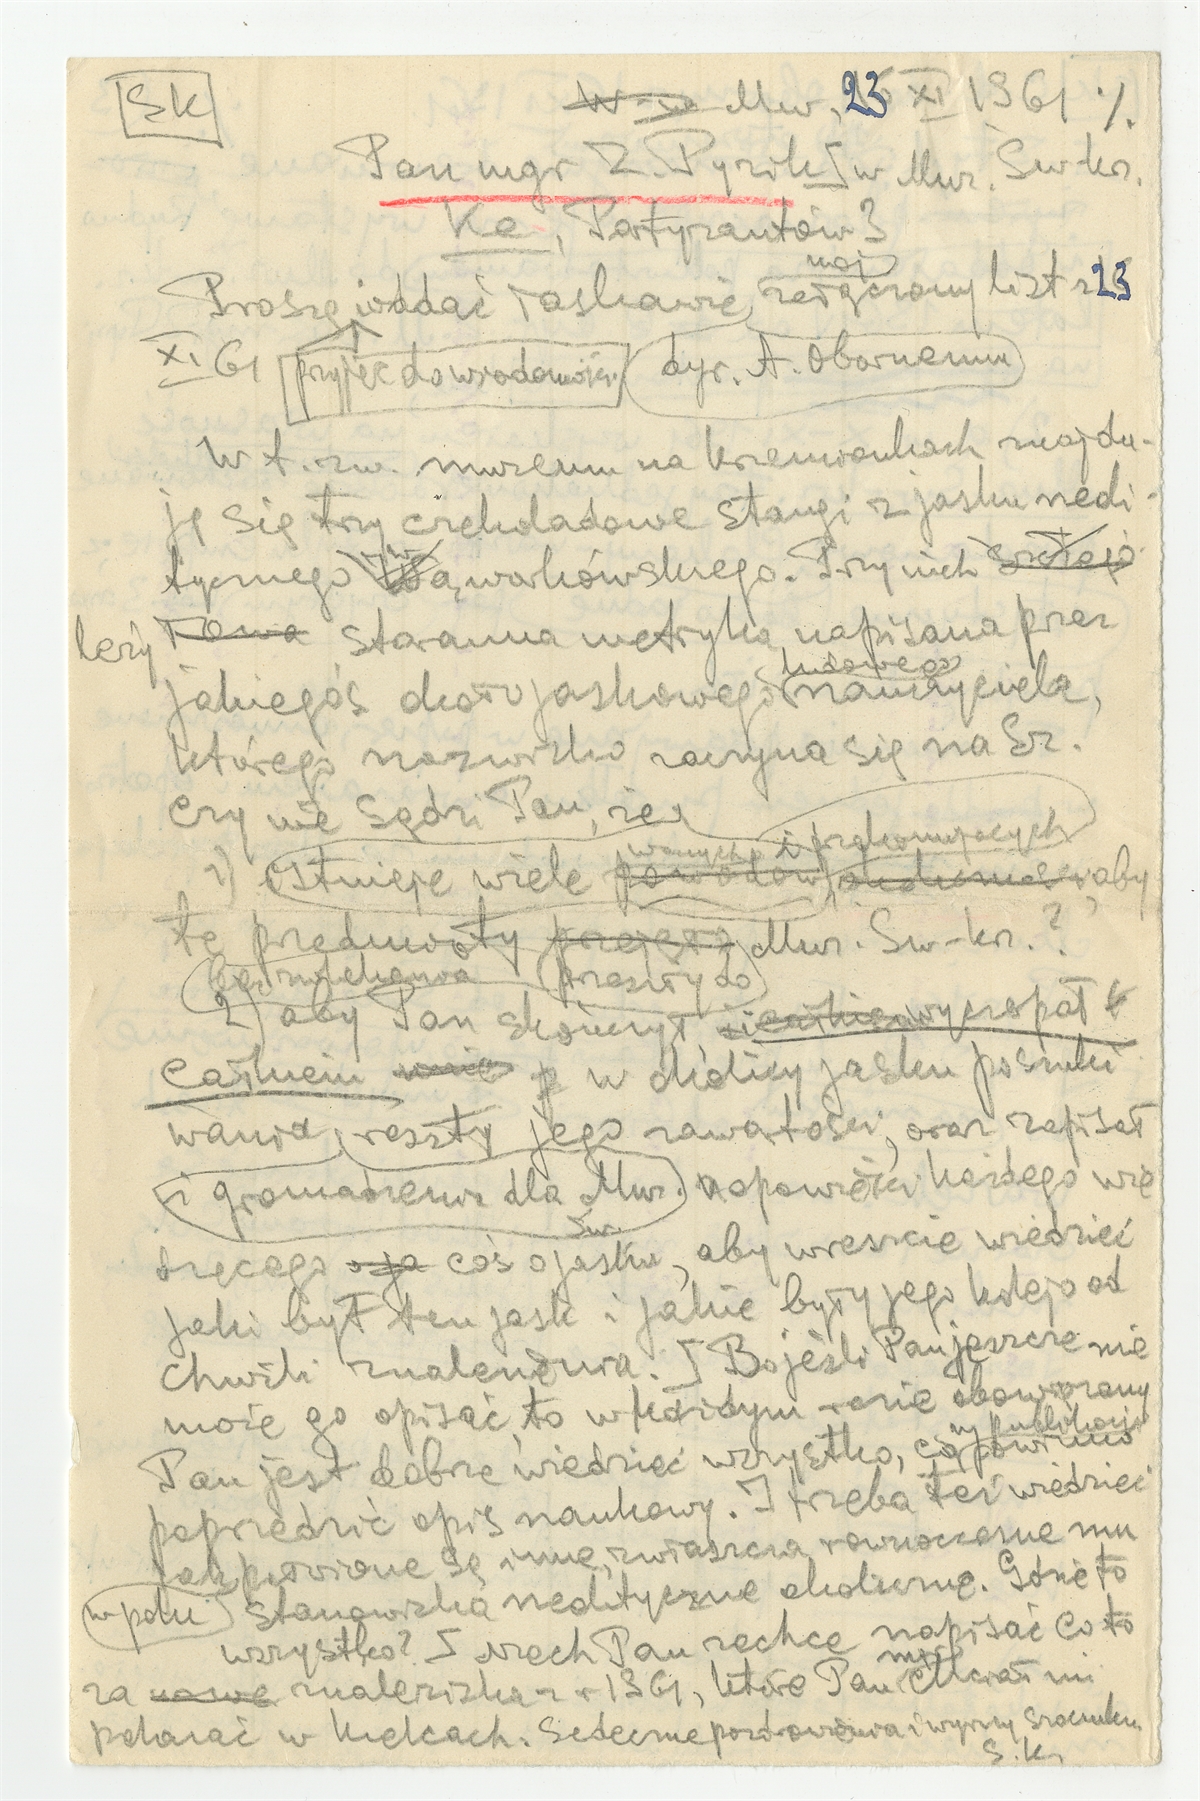 SK
W-wa Mw, 23 XI 1961 ·/.
Pan mgr Z. Pyzik [w Muz. Św-krz.
Ke, Partyzantów 3
Proszę oddać łaskawie mój załączony list z 23
XI 61 przyjąć do wiadomości dyr. A. Obornemu
W t. zw. muzeum na Krzemionkach znajdu-
ją się trzy czekoladowe stangi z jasku neoli-
tycznego ąworkowskiego. Przy nich
leży staranna metryka, napisana przez
jakiegoś około jaskowego ludowego nauczyciela,
którego nazwisko zaczyna się na Sz.
Czy nie sądzi Pan, że
1) istnieje wiele ważnych i przekonujących powodów, aby
te przedmioty Muz. Św-krz.?
bezzwłocznie przeszły do
2) aby Pan skończył wyczerpał
całkiem w okolicy jasku poszuki
wania, reszty jego zawartości, oraz zapisał
i gromadzenia dla Muz. Św. opowieści każdego wie
dzącego coś o jasku, aby wreszcie wiedzieć
jaki był ten jask i jakie były jego koleje od
chwili znalezienia. [Bo jeżli Pan jeszcze nie
może go opisać, to w każdym razie obowiązany
Pan jest dobrze wiedzieć wszystko, co w publikacji powinno
poprzedzić opis naukowy. I trzeba też wiedzieć
jak położone są inne, zwłaszcza równoczesne mu
w polu stanowiska neolityczne okoliczne. Gdzie to
wszystko? [Niech Pan zechce napisać co to
za znaleziska z r 1961, które Pan miał mi
pokazać w Kielcach. Serdeczne pozdrowienia i wyrazy szacunku.
S.K.